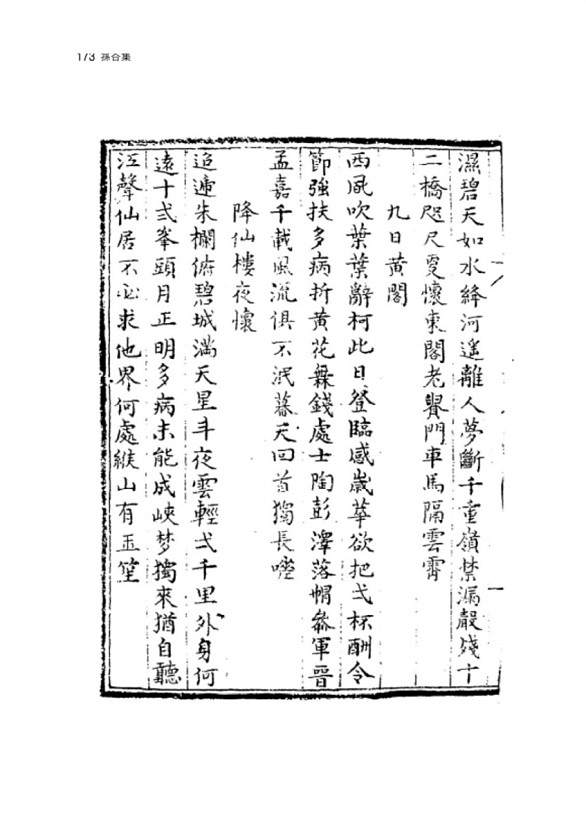 173 孫合集
濕碧天如水絳河遙離人夢斷千重嶺禁漏殸殘十
二橋咫尺夏懷東閣老舋門車馬隔雲霄
九日黄閣
西風吹葉葉辭柯此日登臨感歲華欲把弌杯酬令
節強扶多病折黄花無錢處士陶彭澤落帽叅軍晉
孟嘉千載風流俱不泯暮天回首獨長嗟
降仙樓夜懷
迢遰朱欄俯碧城滿天星斗夜雲輕弌千里外身何
遠十弍峯頭月正明多病未能成峽梦獨來猶自聽
江聲仙居不必求他界何處緱山有玉笙